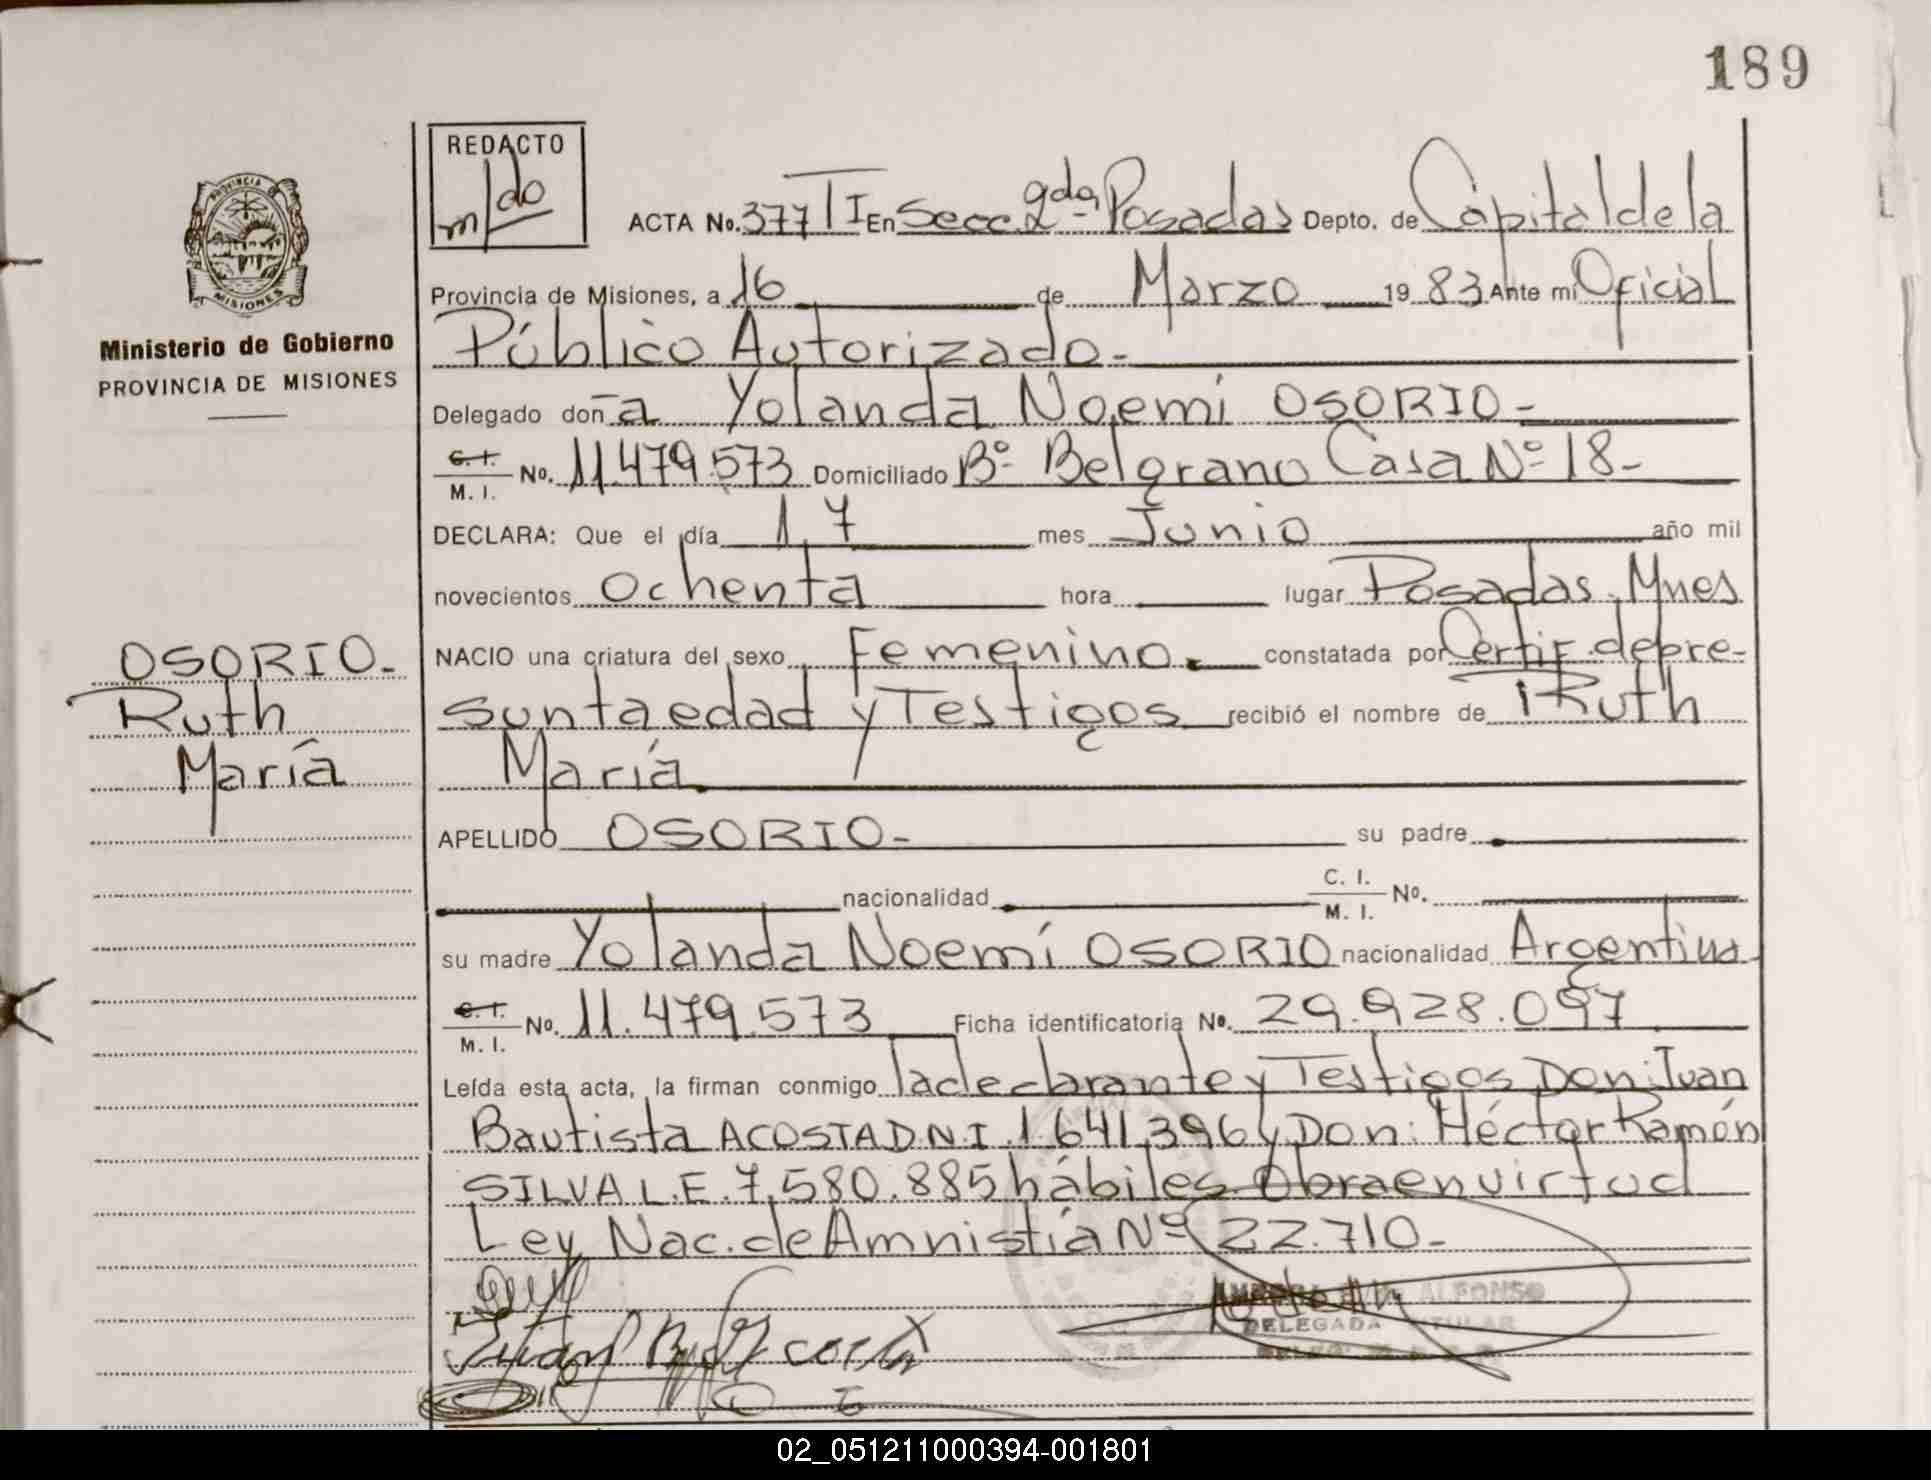 189
REDACTO
m/do
PROVINCIA DE
MISIONES
Ministerio de Gobierno
PROVINCIA DE MISIONES
ACTA No. 377 T I En Secc. 2da. Posadas Depto. de Capital de la
Provincia de Misiones, a 16 de Marzo 19 83 Ante mi Oficial
Público Autorizado-
Delegado don a Yolanda Noemí OSORIO-
C. I. M. I. No. 11.479.573 Domiciliado Bº Belgrano Casa Nº 18-
DECLARA: Que el día 17 mes Junio año mil
novecientos ochenta hora lugar Posadas, Mnes
NACIO una criatura del sexo Femenino. constatada por Certif. de pre-
sunta edad y Testigos recibió el nombre de Ruth
María
OSORIO-
Ruth
María
APELLIDO OSORIO- su padre
nacionalidad C. I. M. I. No.
su madre Yolanda Noemí OSORIO nacionalidad Argentina
C. I. M. I. No. 11.479.573 Ficha identificatoria No. 29.928.097
Leída esta acta, la firman conmigo la declarante y Testigos Don: Juan
Bautista ACOSTA D.N.I. 1.641.396 y Don: Héctor Ramón
SILVA L.E. 7.580.885 hábiles. Obra en virtud
Ley Nac. de Amnistía Nº 22.710-
ALFONSO
DELEGADA TITULAR
02_051211000394-001801